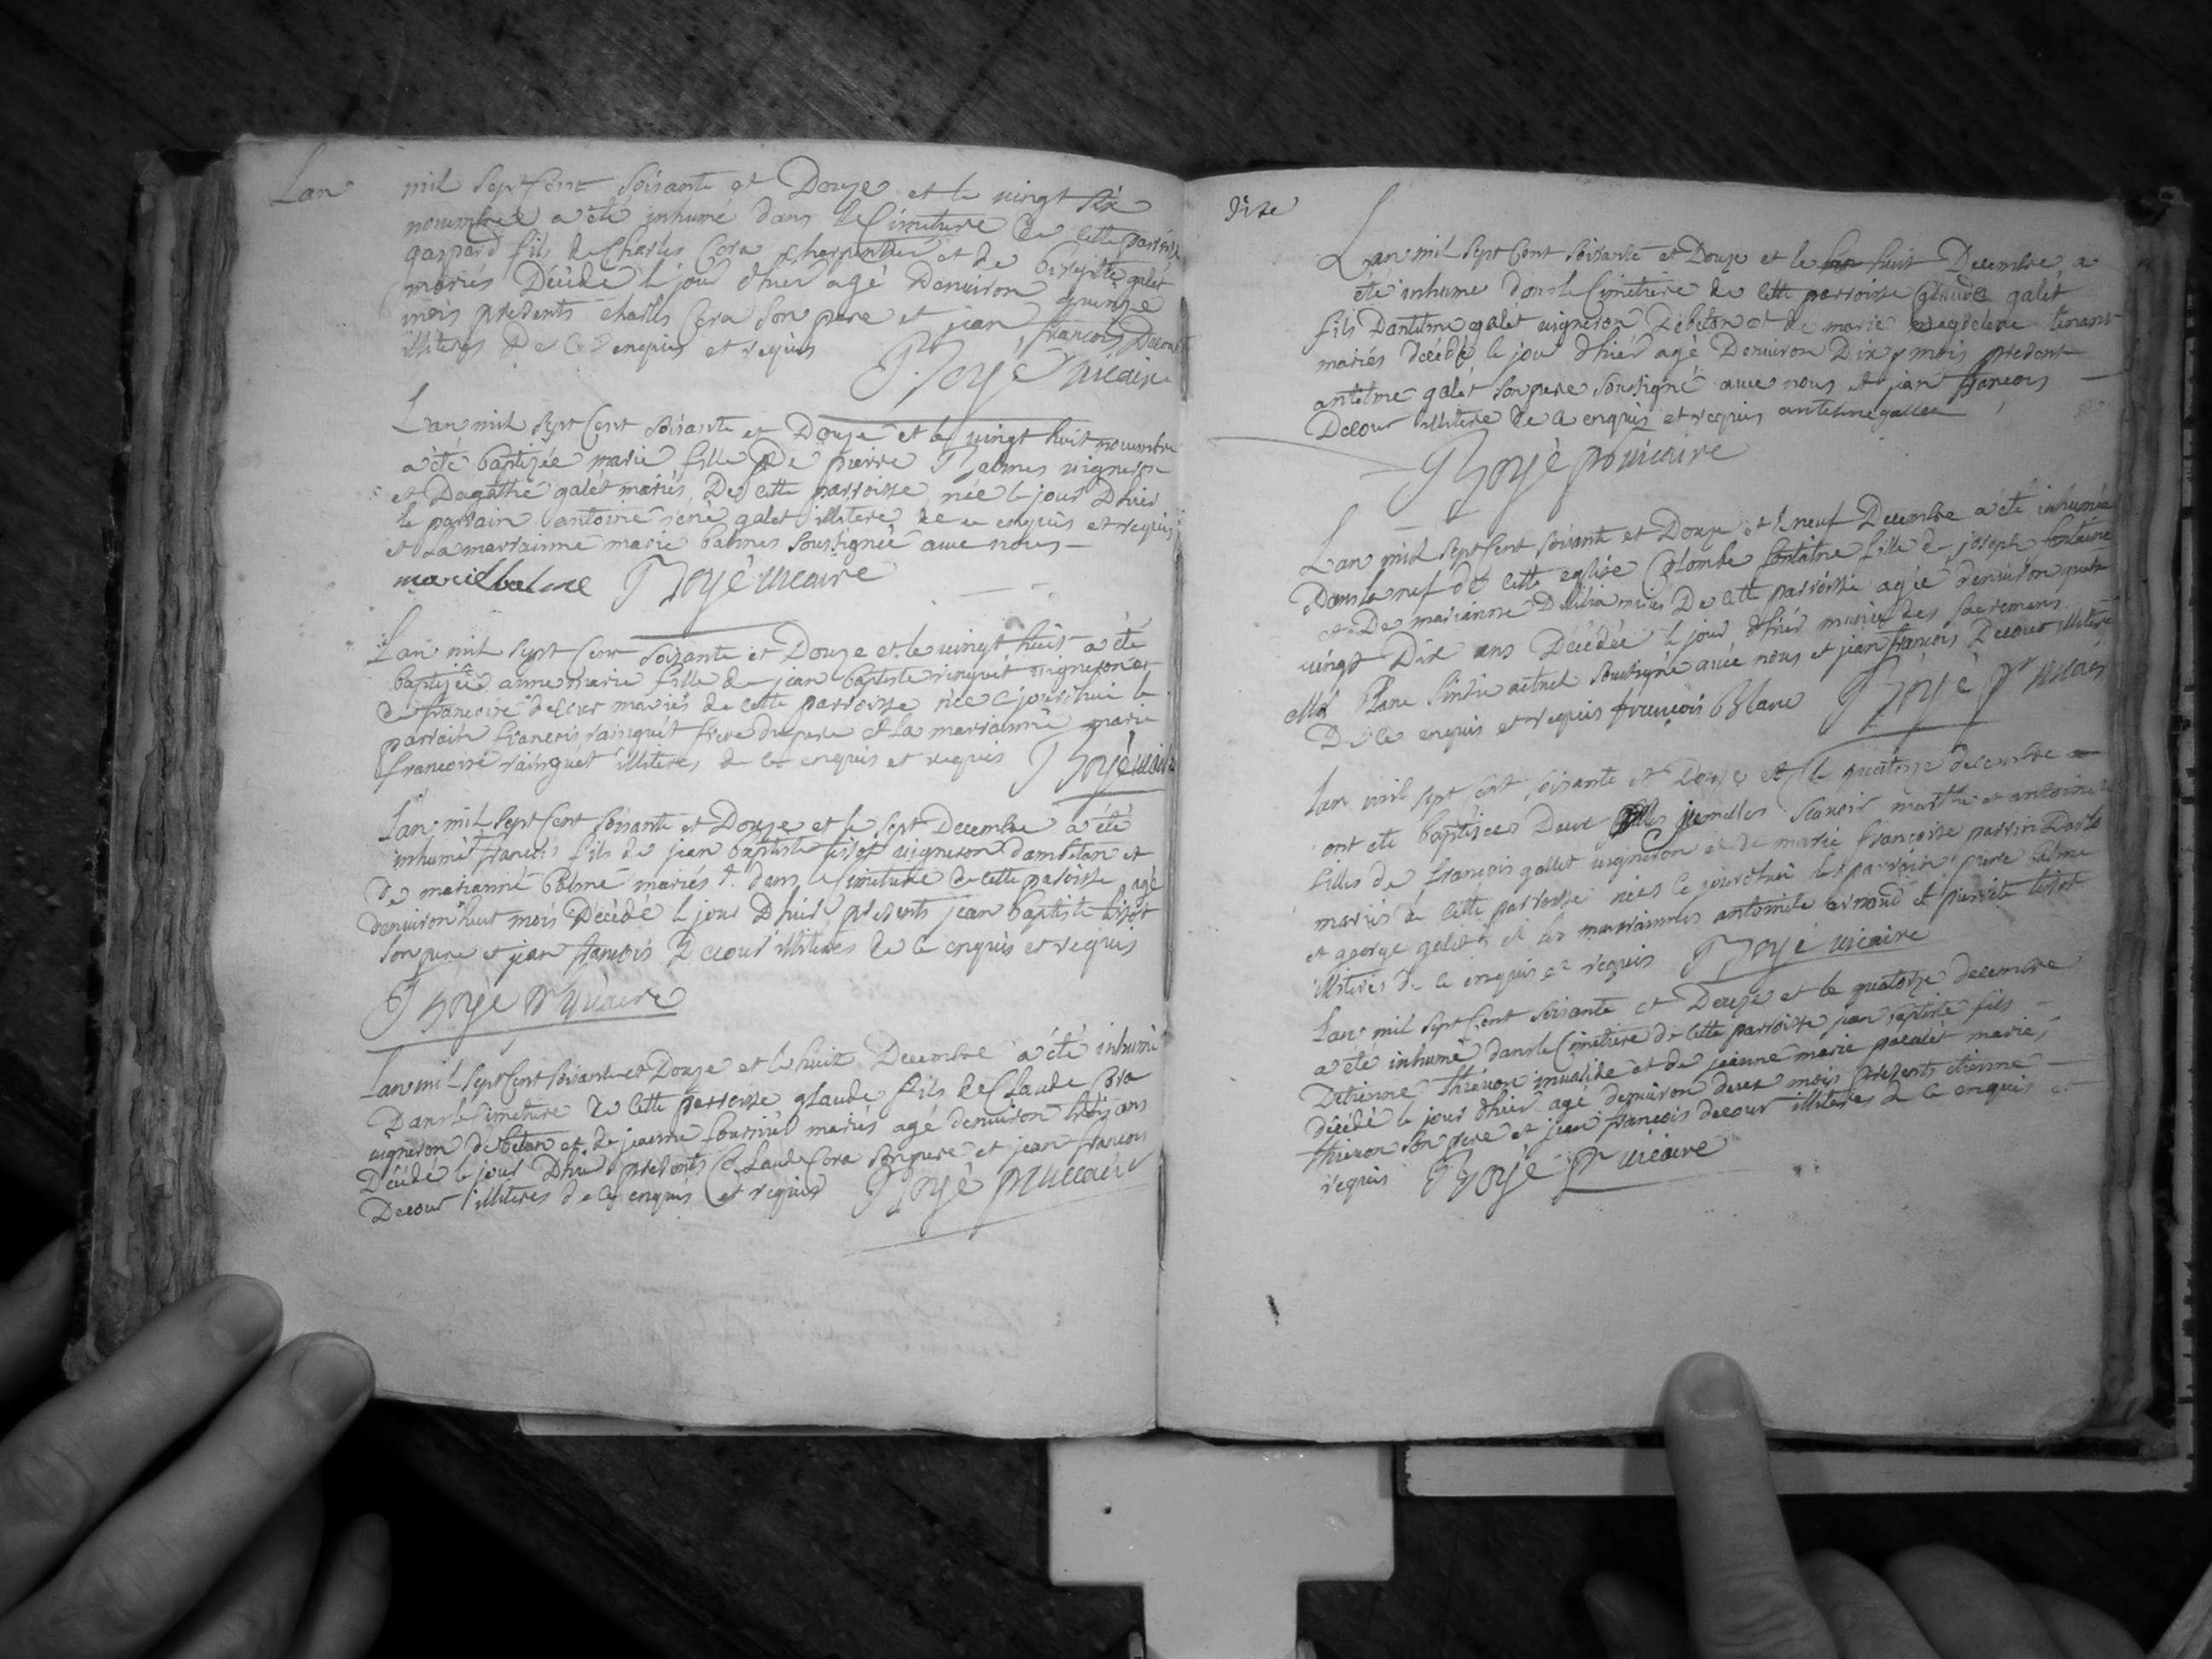 Lan mil sept cent soisante et Douze et le vingt six
novembre a été inhumé dans le Cimetiere de cette parroisse
gaspard fils de Charles Cora charpentier et de galét
mariés Décédé le jour d'hier agé Denviron quinze
mois presents charles Cora son pere et jean francois Decour
illiteres de ce enquis et requis
vicaire
Lan mil sept cent soisante et Douze et le vingt huit novembre
a été baptizée marie fille De pierre Balmes vigneron
et Dagathe galét mariés De cette parroisse née le jour Dhier
le parrain antoine rené galet illitere de ce enquis et requis
et La marrainne marie balmes soussignée avec nous
marie balme vicaire
Lan mil sept cent soisante et Douze et le vingt huit a été
baptizée anne marie fille de jean baptiste rinquét vigneron et
de francoise decour mariés de cette parroisse née ce jourdhui le
parrain francois rainquét frere du pere et La marrainne marie
francoise rainquét illiteres de ce enquis et requis vicaire
Lan mil sept cent soisante et Douze et le sept Decembre a été
inhumé francois fils de jean baptiste tissot vigneron dambetan et
de marianne Balme mariés dans le Cimetiere de cette paroisse agé
denviron huit mois Décédé le jour Dhier presents jean baptiste tissot
son pere et jean francois Decour illiteres de ce enquis et requis
vicaire
Lan mil sept cent soisante et Douze et le huit Decembre a été inhumé
Dans le Cimetiere de cette parroisse glaude fils de Claude Cora
vigneron de betan et de jeanne fournié mariés agé denviron trois ans
Décédé le jour Dhier presents Claude Cora son pere et jean francois
Decour illiteres de ce enquis et requis vicaire
dixe
Lan mil sept cent soisante et Douze et le huit Decembre a
été inhumé dans le Cimetiere de cette parroisse glaude galét
fils Dantelme galet vigneron Debetan et de marie magdelene tenant
mariés décédé le jour dhier agé Denviron Dix mois present
antelme galét son pere soussigné avec nous et jean francois
Decour illitere de ce enquis et requis antelme gallet
vicaire
Lan mil sept cent soisante et Douze et le neuf Decembre a été inhumée
Dans la nef de cette eglise Colombe fontaine fille de joseph fontaine
et De marianne mariés De cette parroisse agée denviron quatre
vingt Dix ans Décédée le jour d'hier munie des sacremens
Blanc sindic actuel soussigné avec nous et jean francois Decour illitere
De ce enquis et requis francois Blanc
Lan mil sept cent soisante et Douze et le quatorze decembre
ont été baptisées Deux filles jumelles scavoir marthe et antoinete
filles de francois gallet vigneron et de marie francoise perrin
mariés de cette parroisse nées ce jourdhui les parrains pierre balme
et george galét et les marrainnes antoinete arnaud et pierrete tissot
illiteres de ce enquis et requis vicaire
Lan mil sept cent soisante et Douze et le quatorze decembre
a été inhumé dans le Cimetiere de cette parroisse jean baptiste fils
Detienne thévenon invalide et de jeanne marie mariés
décédé le jour dhier agé denviron deux mois presents etienne
thévenon son pere et jean francois decour illiteres de ce enquis et
requis vicaire